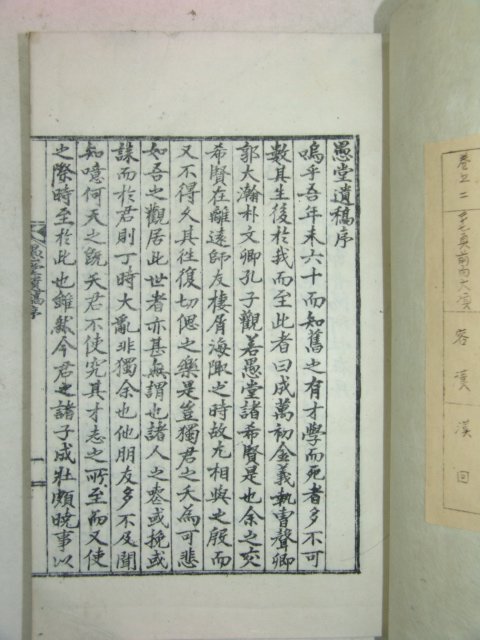 愚堂遺稿序
嗚乎吾年未六十而知舊之有才學而死者多不可
數其生後於我而至此者曰成萬初金義執曺聲卿
郭大瀚朴文卿孔子觀若愚堂諸希賢是也余之交
希賢在離遠師友棲屑海陬之時故尤相與之殷而
又不得久其往復切偲之樂是豈獨君之夭為可悲
如吾之觀居此世者亦甚無謂也諸人之葬或挽或
誄而於君則丁時大亂非獨余也他朋友多不及聞
知噫何天之旣夭君不使究其才志之所至而又使
之際時至於此也雖然今君之諸子成壯頗曉事以
愚堂遺稿序
卷之二
大
容
漢
回